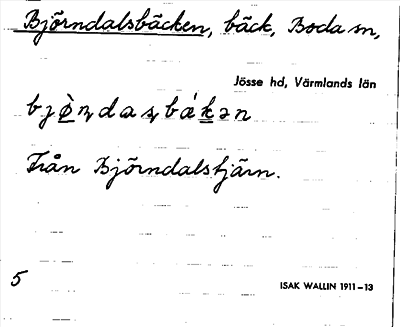 Björndalsbäcken, bäck, Boda sn,
Jösse hd, Värmlands län
Från Björndalstjärn.
5
ISAK WALLIN 1911–13